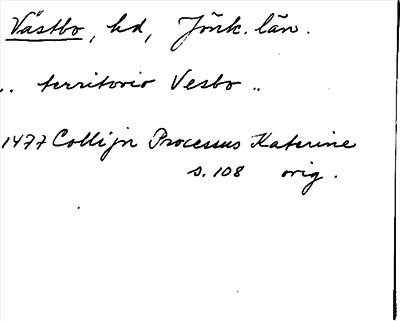 Västbo, hd, Jönk. län.
.. territorio Vesbo ..
1477 Collijn Processus Katerine
s. 108 orig.